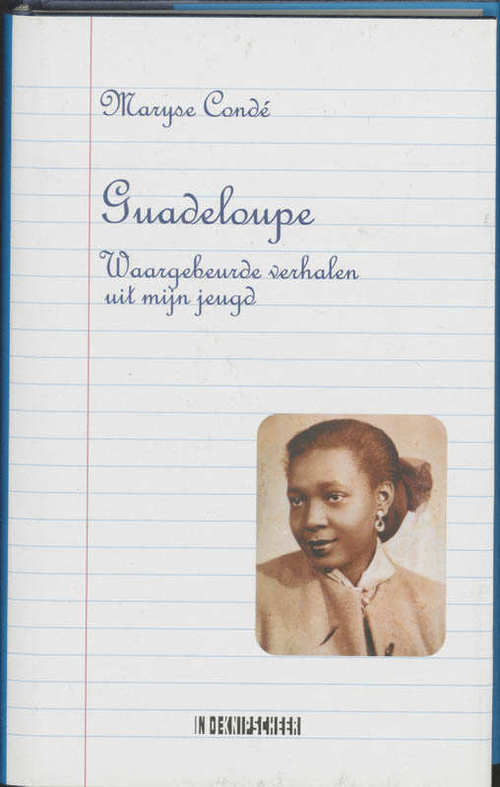 Maryse Condé
Guadeloupe
Waargebeurde verhalen
uit mijn jeugd
IN DE KNIPSCHEER